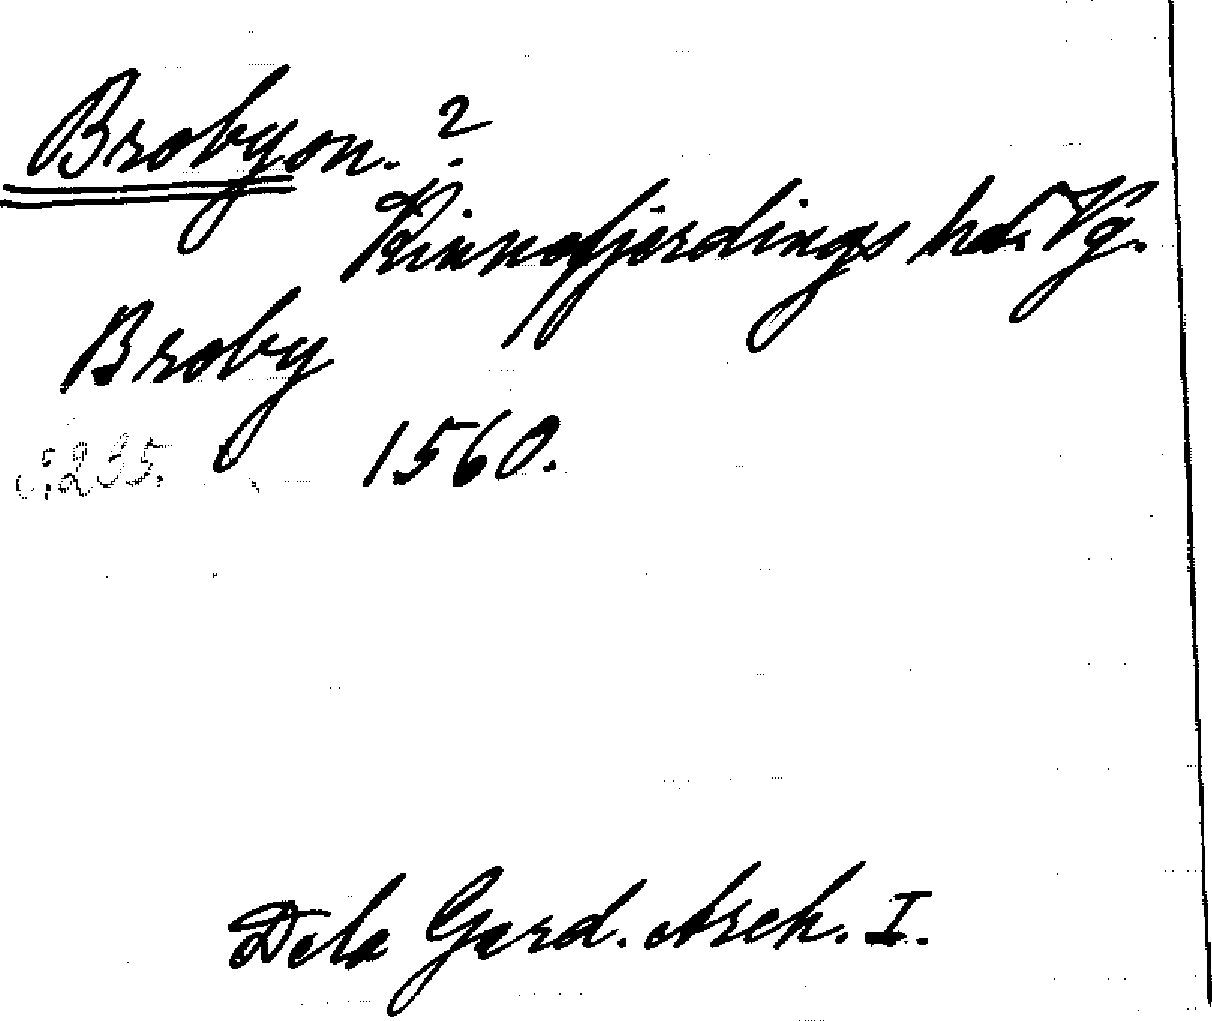 Broby on. ?
Kinnefjerdings hd. Vg.
Broby
s. 235. 1560.
Dela Gard. Arch. I.